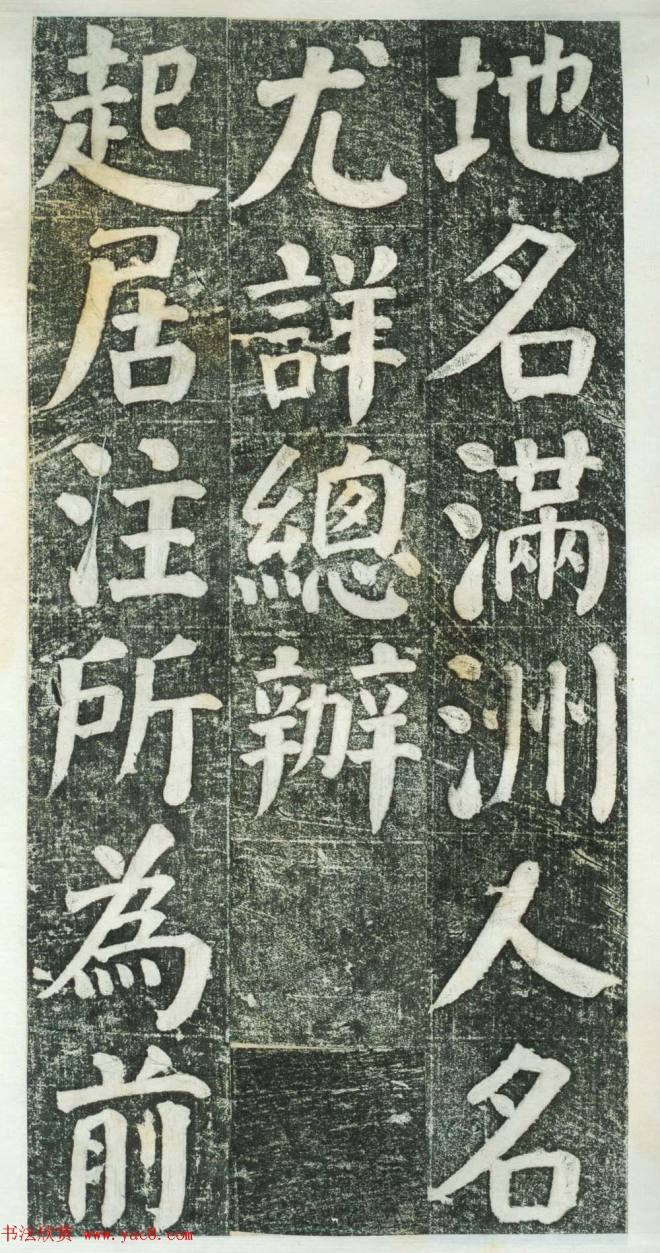 地名滿洲人名
尤詳總辦
起居注所為前
书法欣赏 www.yac8.com